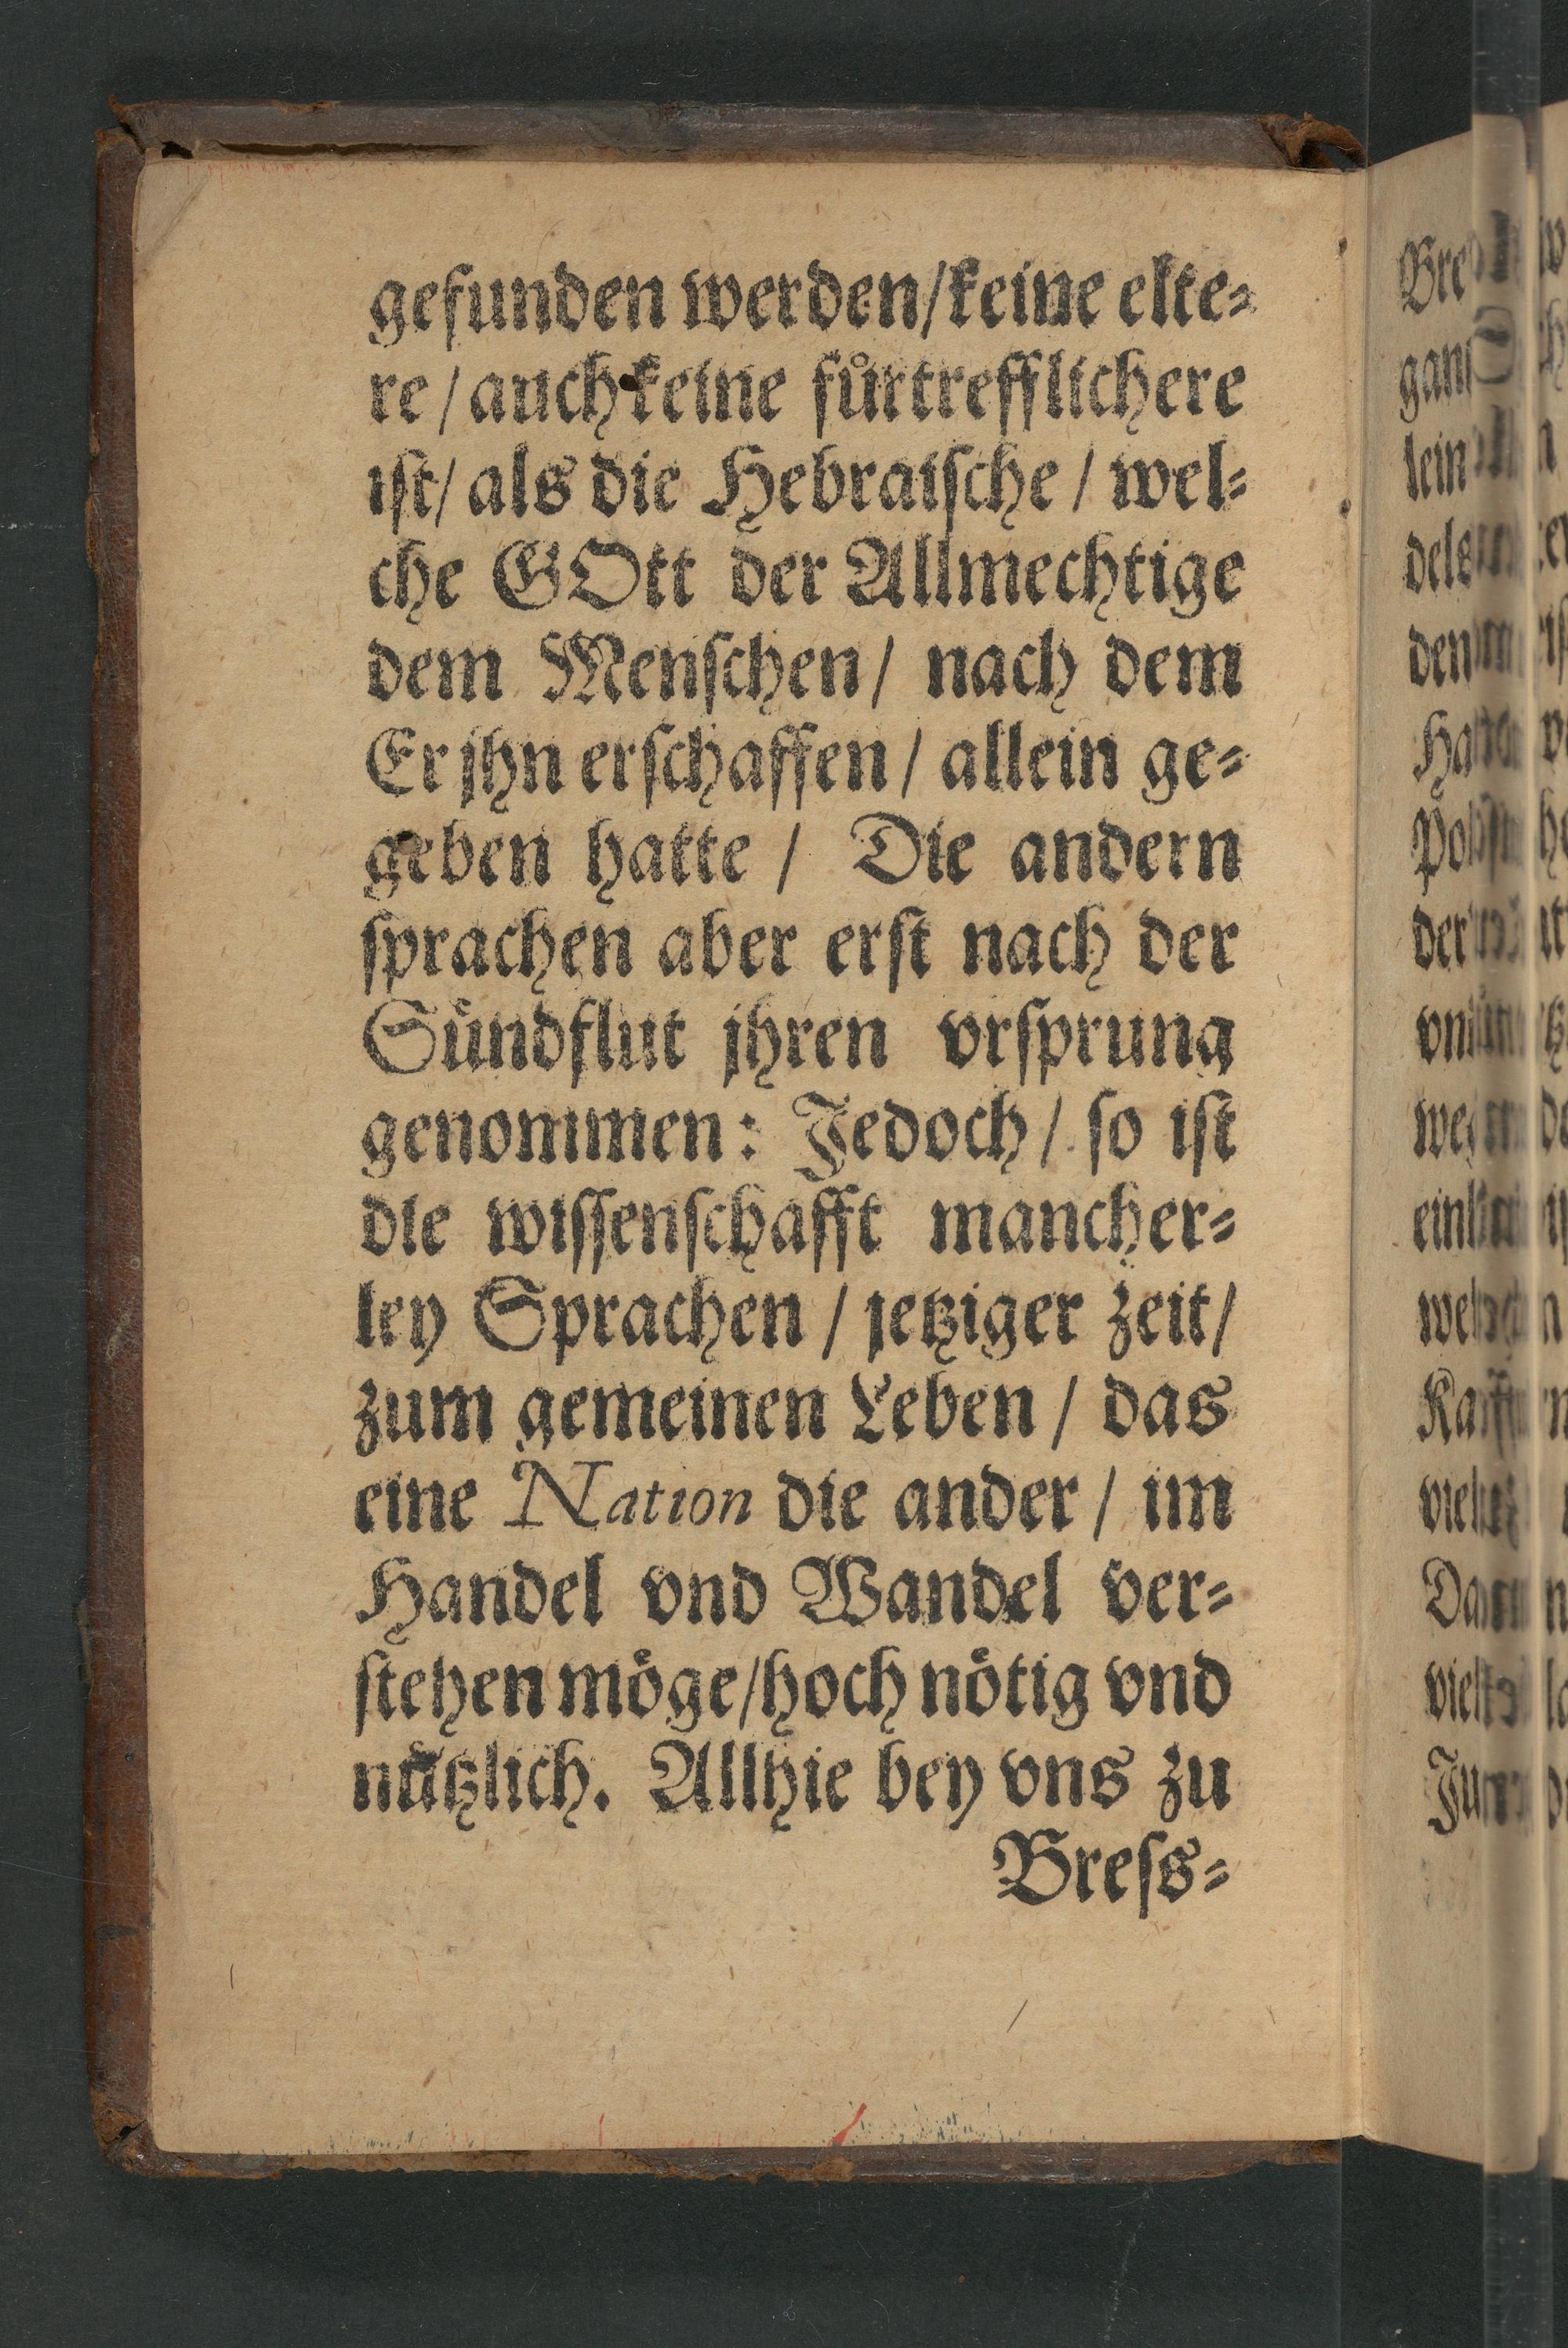 gefunden werden/keine elte⸗
re/auch keine fuͤrtrefflichere
iſt/als die Hebraiſche/wel⸗
che GOtt der Allmechtige
dem Menſchen/ nach dem
Er jhn erſchaffen/ allein ge⸗
geben hatte / Die andern
ſprachen aber erſt nach der
Suͤndflut jhren vrſprung
genommen: Jedoch/ ſo iſt
die wiſſenſchafft mancher⸗
ley Sprachen / jetziger zeit/
zum gemeinen Leben / das
eine Nation die ander / im
Handel vnd Wandel ver⸗
ſtehen moͤge/hoch noͤtig vnd
nuͤtzlich. Allhie bey vns zu
Breſs⸗